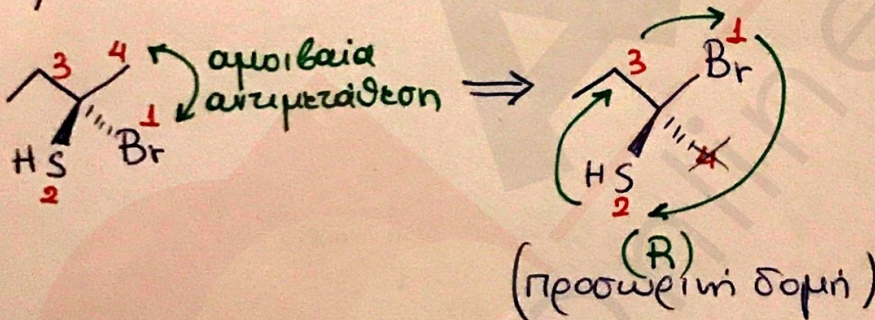 3 4 αμοιβαία
αντιμετάθεση
1
HS Br
2
⟹
3 1
Br
4
HS
2
(R)
(προσωρινή δομή)
line